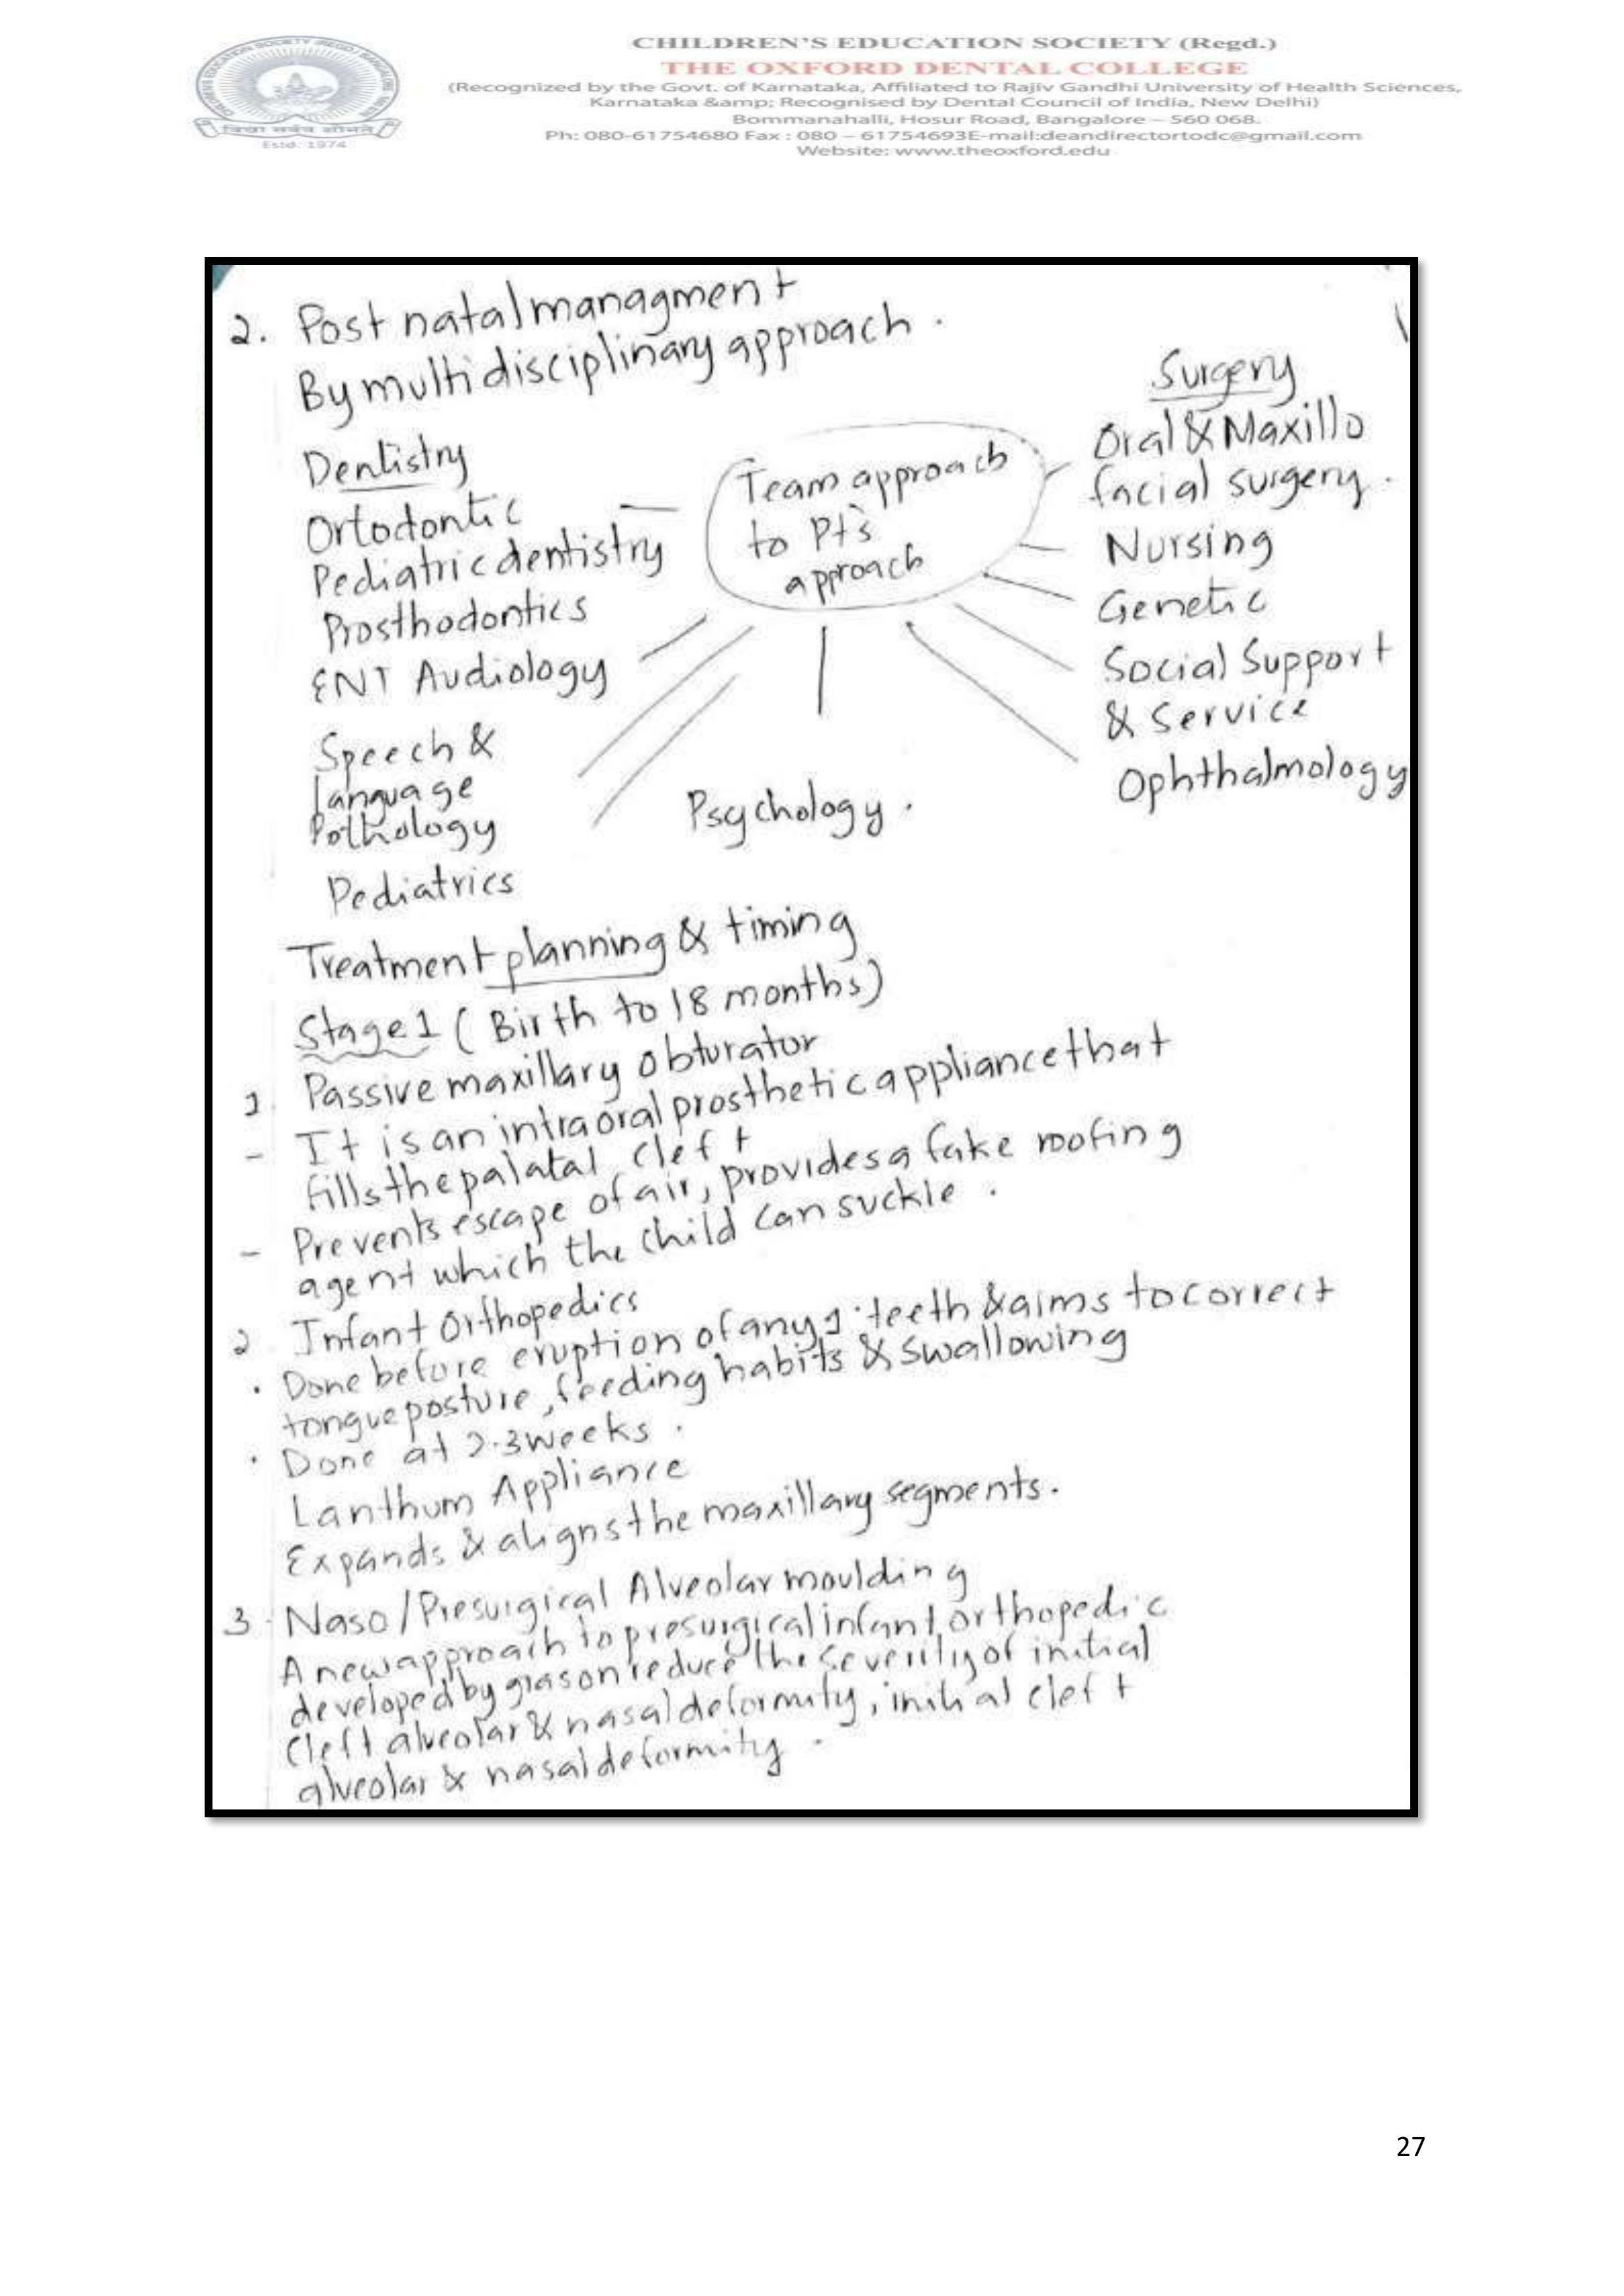 CHILDREN'S EDUCATION SOCIETY (Regd.)
THE OXFORD DENTAL COLLEGE
(Recognized by the Govt. of Karnataka, Affiliated to Rajiv Gandhi University of Health Sciences,
Karnataka &amp; Recognised by Dental Council of India, New Delhi)
Bommanahalli, Hosur Road, Bangalore – 560 068.
Ph: 080-61754680 Fax : 080 – 61754693E-mail:deandirectortodc@gmail.com
Website: www.theoxford.edu
Estd. 1974
2. Post natal managment
By multidisciplinary approach.
Dentistry
Ortodontic
Pediatric dentistry
Prosthodontics
ENT Audiology
Speech &
language
Pathology
Pediatrics
Team approach
to Pt's
approach
Psychology.
Surgery
Oral & Maxillo
facial surgery.
Nursing
Genetic
Social Support
& Service
Ophthalmology
Treatment planning & timing
Stage 1 (Birth to 18 months)
1. Passive maxillary obturator
- It is an intraoral prosthetic appliance that
fills the palatal cleft
- Prevents escape of air, provides a fake roofing
agent which the child can suckle.
2 Infant Orthopedics
. Done before eruption of any teeth & aims to correct
tongue posture, feeding habits & swallowing
. Done at 2-3 weeks.
Lanthum Appliance
Expands & aligns the maxillary segments.
3 - Naso / Presurgical Alveolar moulding
A new approach to presurgical infant orthopedic
developed by grason reduce the severity of initial
cleft alveolar & nasal deformity, initial cleft
alveolar & nasal deformity.
27